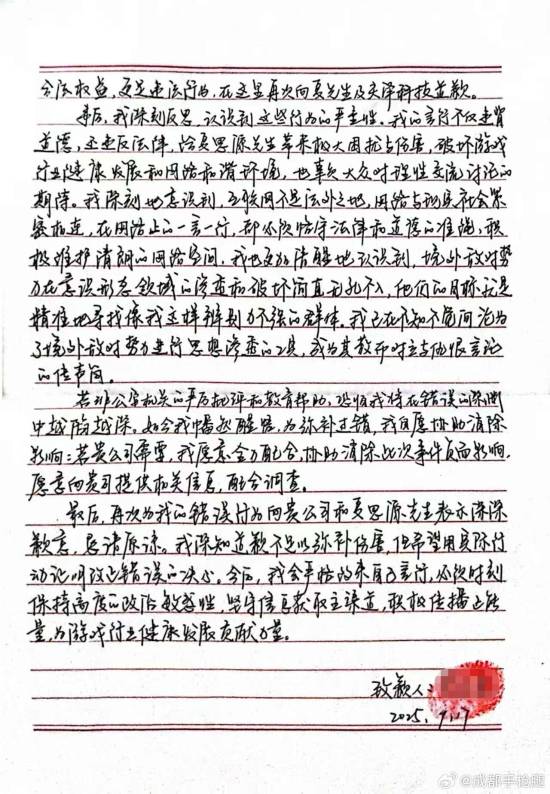 合法权益，更是违法行为，在这里再次向夏先生及灵泽科技道歉。
事后，我深刻反思，认识到这些行为的严重性。我的言行不仅违背
道德，还违反法律，给夏思源先生带来极大困扰与伤害，破坏游戏
行业健康发展和网络和谐环境，也辜负大众对理性交流讨论的
期待。我深刻地意识到，互联网不是法外之地，网络与现实社会紧
密相连，在网络上的一言一行，都必须恪守法律和道德的准绳，积
极维护清朗的网络空间。我也更加清醒地认识到，境外敌对势
力在意识形态领域的渗透和破坏简直无孔不入，他们的目标就是
精准地寻找像我这样辨别力不强的群体。我已在不知不觉间沦为
了境外敌对势力进行思想渗透的工具，成为其散布对立与仇恨言论
的传声筒。
若非公安机关的严厉批评和教育帮助，恐怕我将在错误的深渊
中越陷越深。如今我幡然醒悟，为弥补过错，我自愿协助消除
影响：若贵公司需要，我愿意全力配合，协助消除此次事件负面影响，
愿意向贵司提供相关信息，配合调查。
最后，再次为我的错误行为向贵公司和夏思源先生表示深深
歉意，恳请原谅。我深知道歉不足以弥补伤害，但希望用实际行
动证明改正错误的决心。今后，我会严格约束自己言行，必须时刻
保持高度的政治敏感性，坚守信息获取主渠道，积极传播正能
量，为游戏行业健康发展贡献力量。
致歉人：
2025.9.17
@成都手枪腿